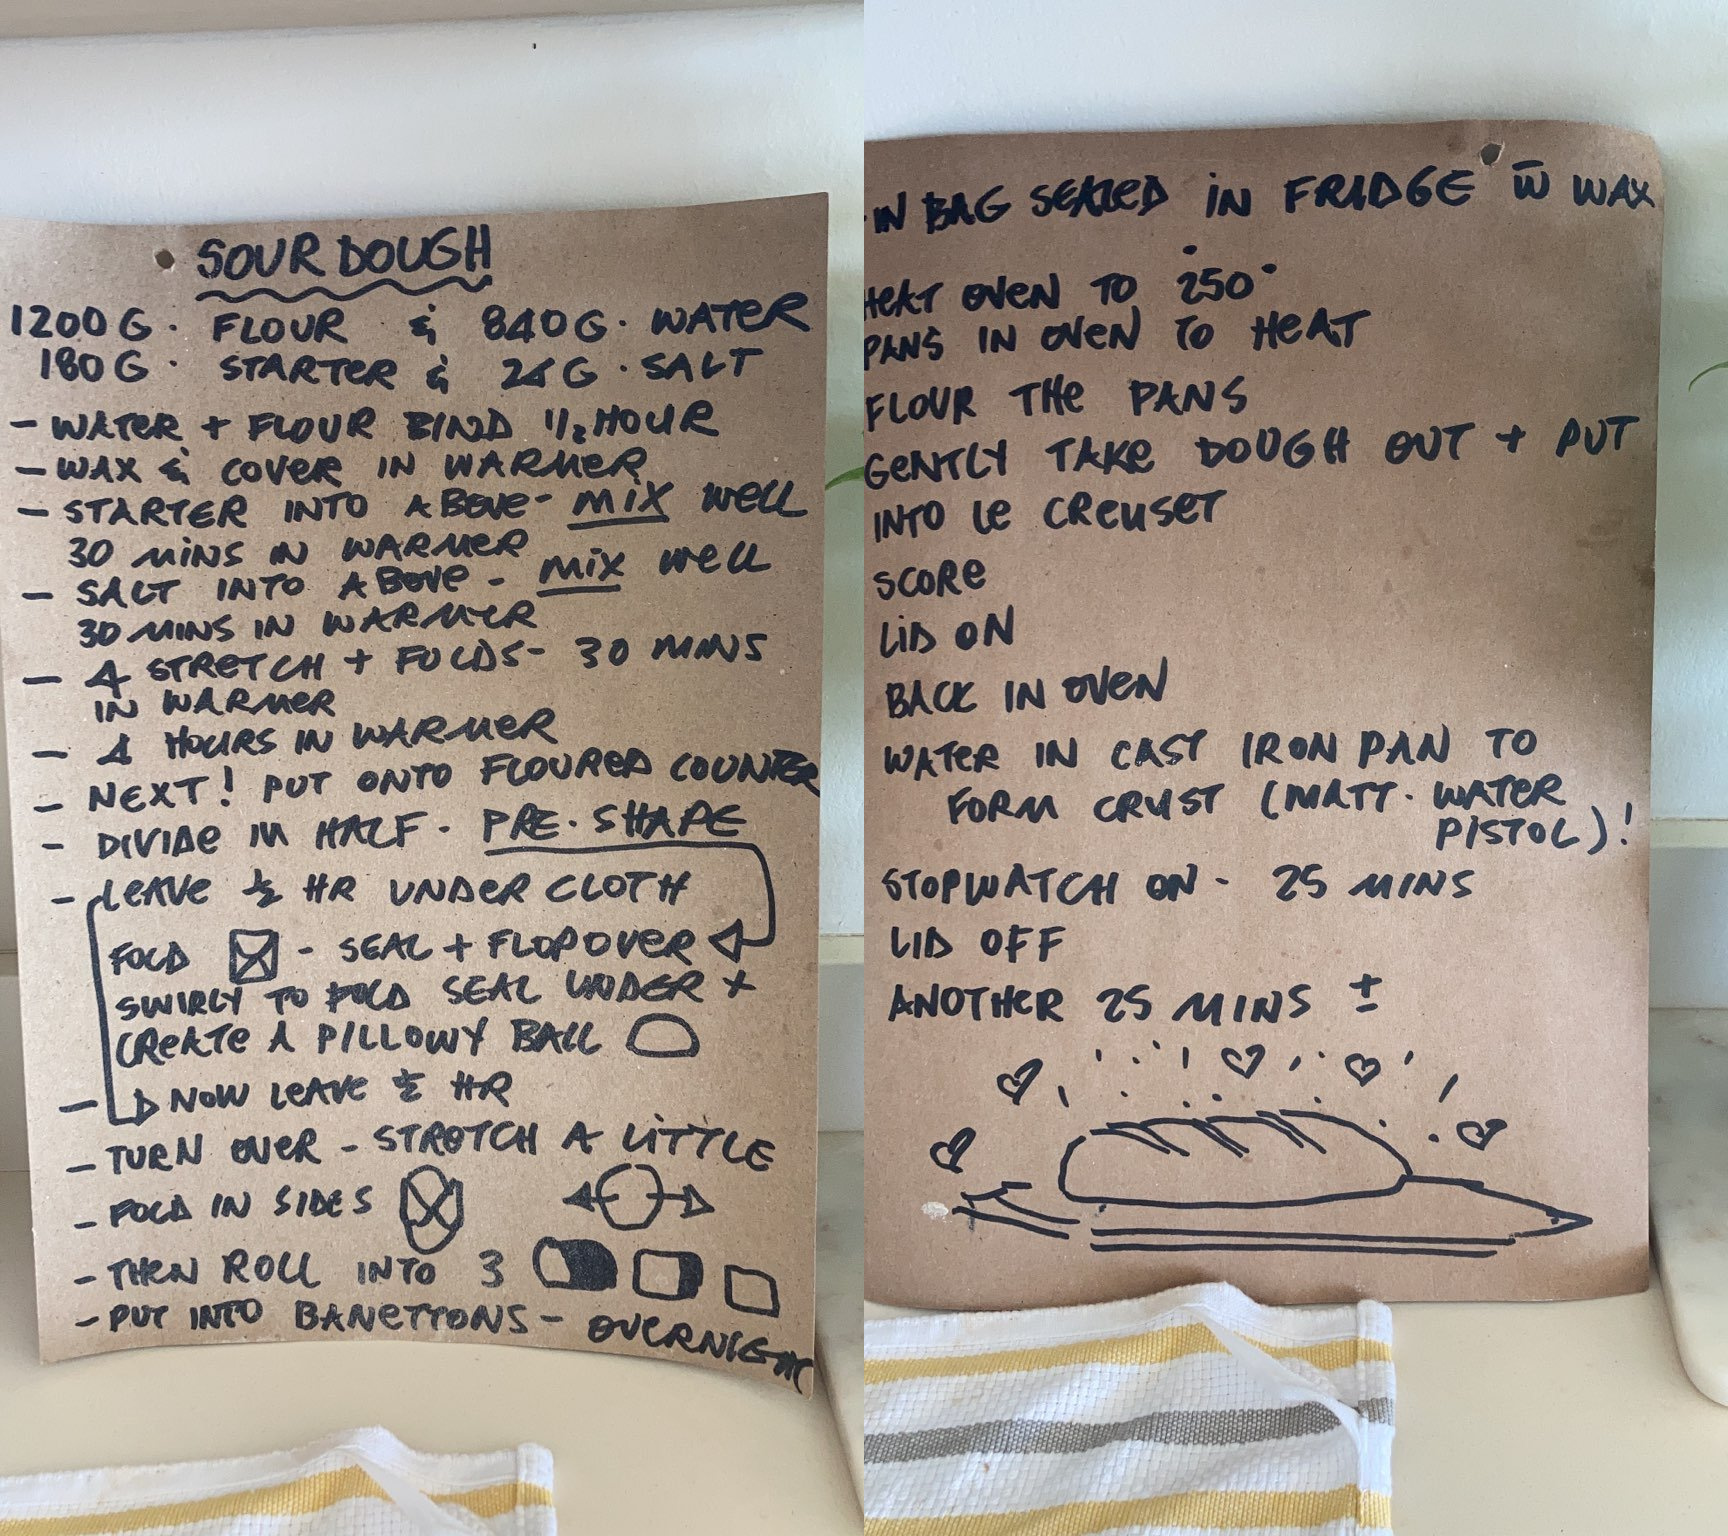 SOUR DOUGH
1200 G. FLOUR & 840 G. WATER
180 G. STARTER & 24 G. SALT
- WATER + FLOUR BIND 1/2 HOUR
- WAX & COVER IN WARMER
- STARTER INTO ABOVE - MIX WELL
30 MINS IN WARMER
- SALT INTO ABOVE - MIX WELL
30 MINS IN WARMER
- 4 STRETCH + FOLDS - 30 MINS
IN WARMER
- 4 HOURS IN WARMER
- NEXT! PUT ONTO FLOURED COUNTER
- DIVIDE IN HALF - PRE-SHAPE
- LEAVE 1/2 HR UNDER CLOTH
FOLD - SEAL + FLOP OVER
SWIRLY TO FOLD SEAL UNDER +
CREATE A PILLOWY BALL
- NOW LEAVE 1/2 HR
- TURN OVER - STRETCH A LITTLE
- FOLD IN SIDES
- THEN ROLL INTO 3
- PUT INTO BANETTONS - OVERNIGHT
IN BAG SEALED IN FRIDGE w̄ WAX
HEAT OVEN TO 250°
PANS IN OVEN TO HEAT
FLOUR THE PANS
GENTLY TAKE DOUGH OUT + PUT
INTO LE CREUSET
SCORE
LID ON
BACK IN OVEN
WATER IN CAST IRON PAN TO
FORM CRUST (MATT. WATER
PISTOL)!
STOPWATCH ON - 25 MINS
LID OFF
ANOTHER 25 MINS ±